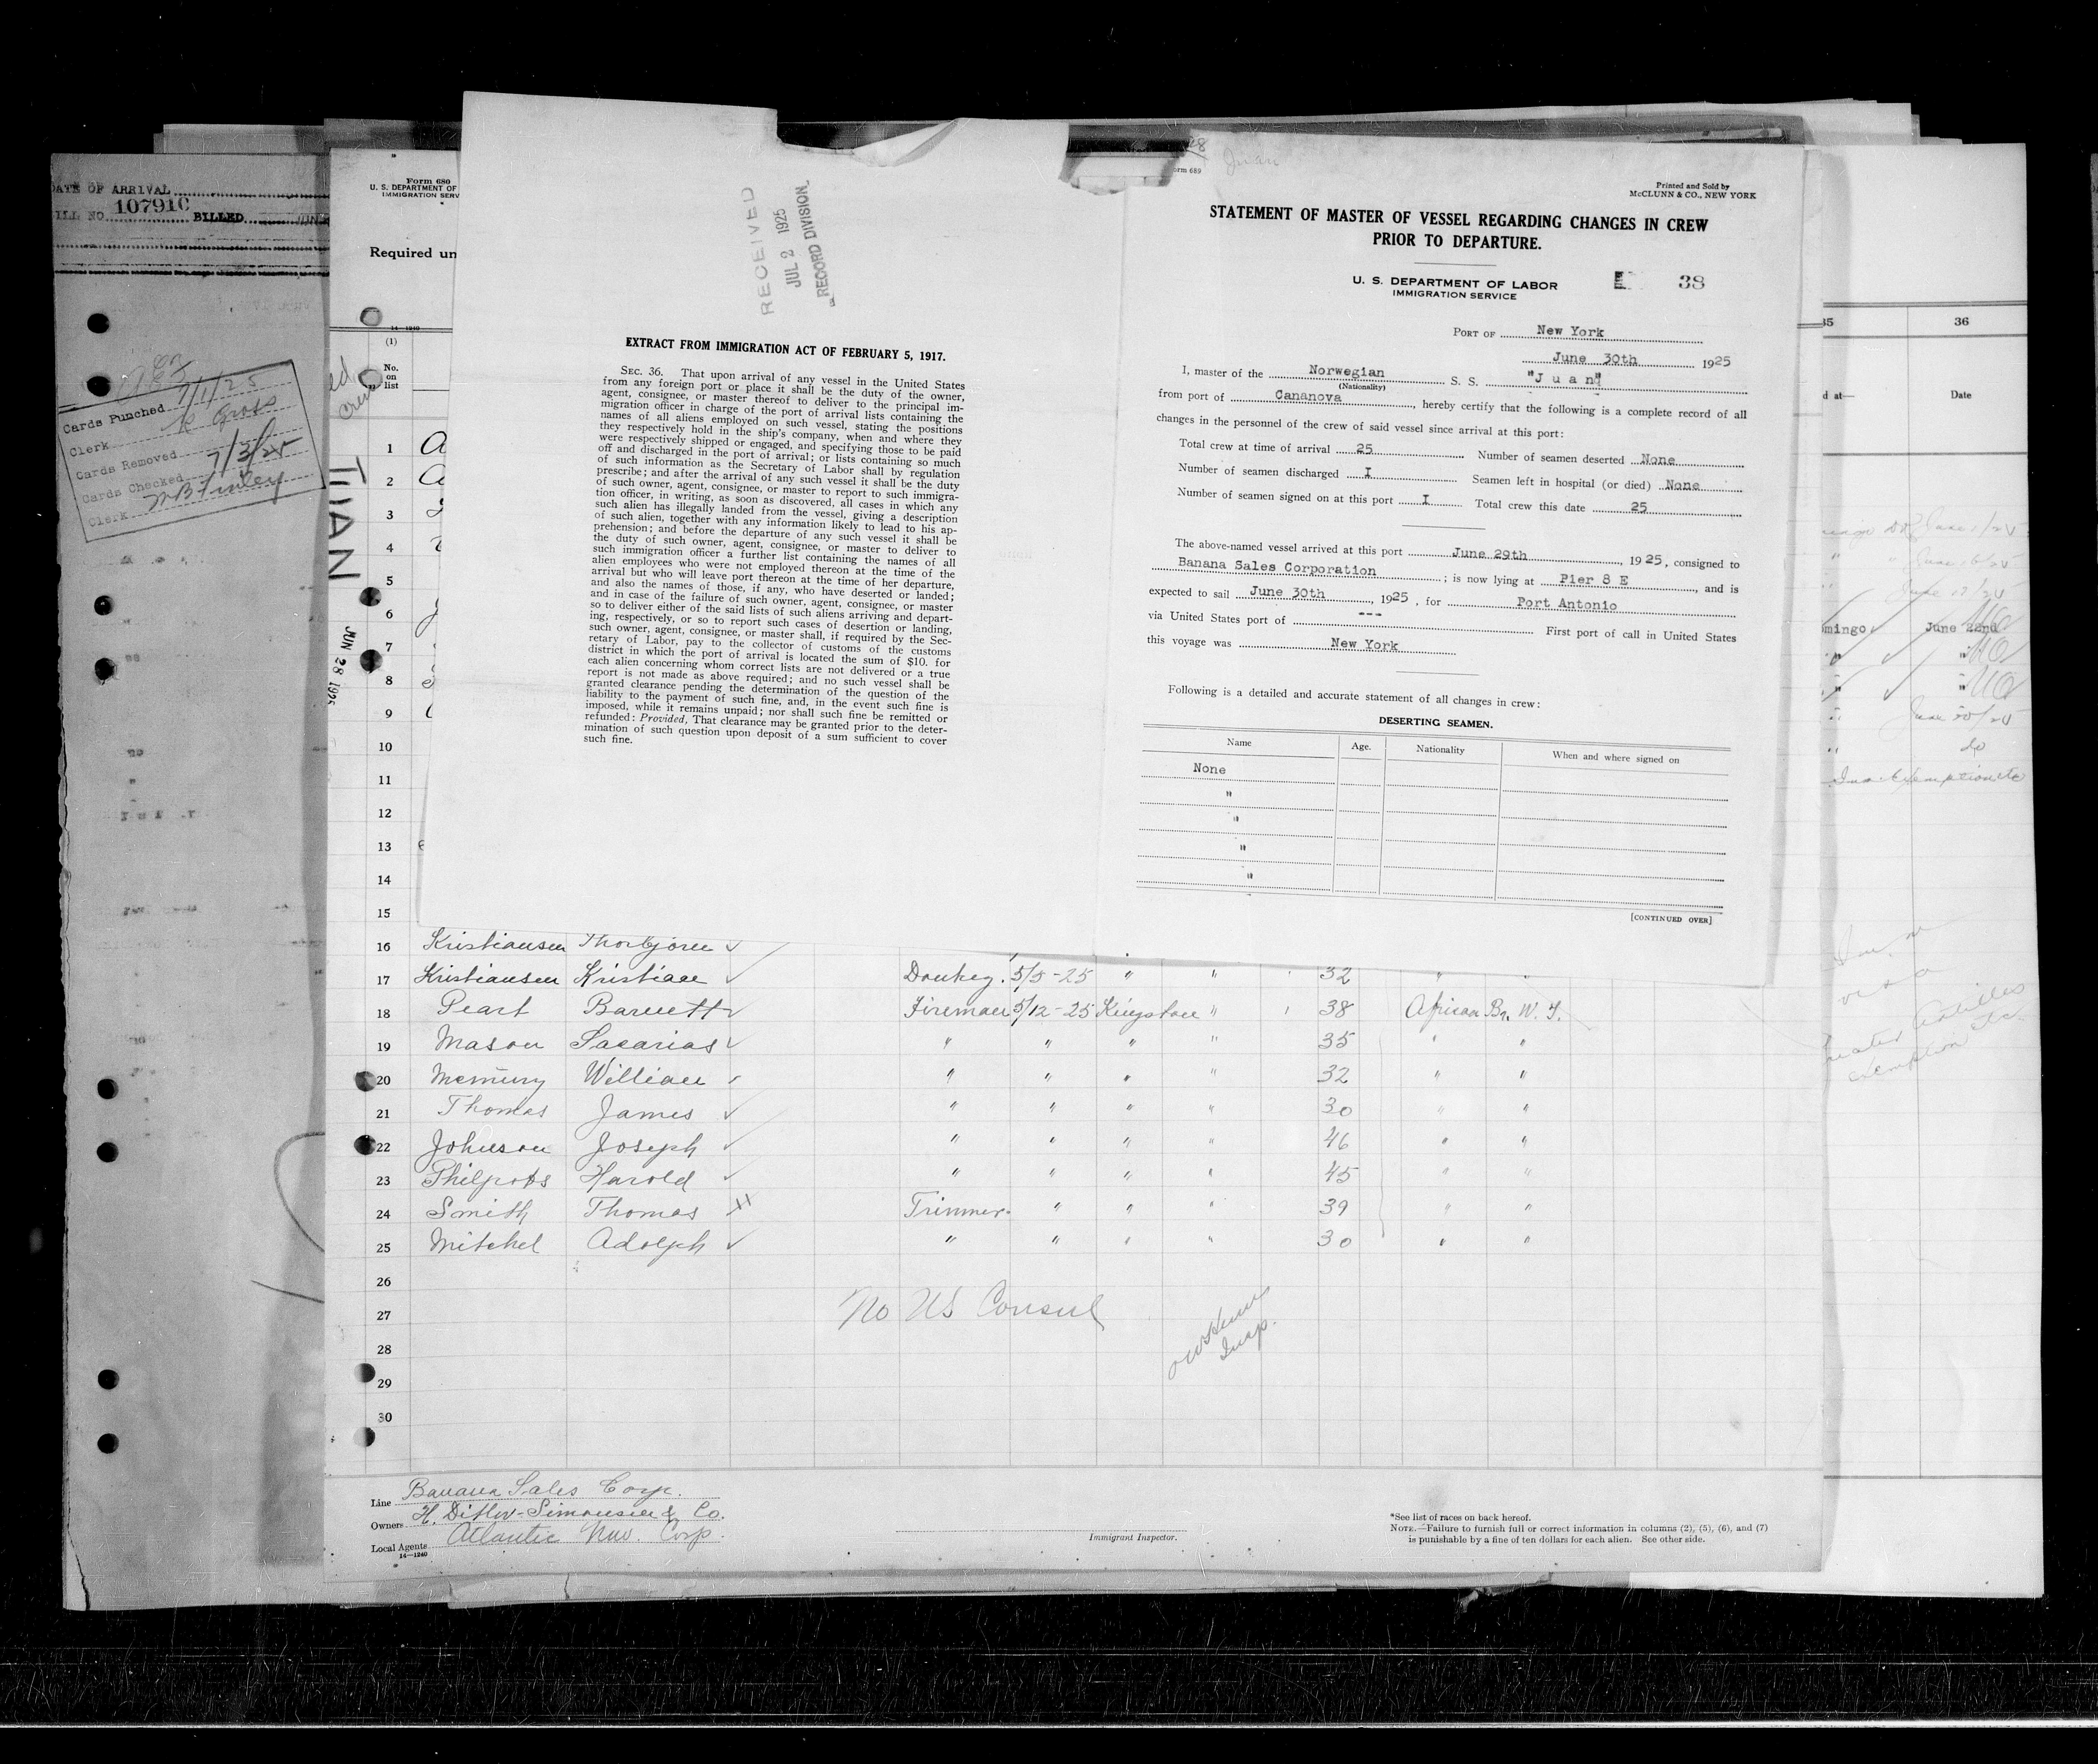 DATE OF ARRIVAL
BILL NO. 107910 BILLED
Cards Punched 7/1/25
Clerk K Gross
Cards Removed
Cards Checked 7/3/25
Clerk M B Finley
Form 680
U. S. DEPARTMENT OF
IMMIGRATION SERV
Required un
14—1240
(1)
No.
on
list
JUAN
JUN 28 1925
RECEIVED
JUL 2 1925
RECORD DIVISION
EXTRACT FROM IMMIGRATION ACT OF FEBRUARY 5, 1917.
SEC. 36. That upon arrival of any vessel in the United States
from any foreign port or place it shall be the duty of the owner,
agent, consignee, or master thereof to deliver to the principal im-
migration officer in charge of the port of arrival lists containing the
names of all aliens employed on such vessel, stating the positions
they respectively hold in the ship's company, when and where they
were respectively shipped or engaged, and specifying those to be paid
off and discharged in the port of arrival; or lists containing so much
of such information as the Secretary of Labor shall by regulation
prescribe; and after the arrival of any such vessel it shall be the duty
of such owner, agent, consignee, or master to report to such immigra-
tion officer, in writing, as soon as discovered, all cases in which any
such alien has illegally landed from the vessel, giving a description
of such alien, together with any information likely to lead to his ap-
prehension; and before the departure of any such vessel it shall be
the duty of such owner, agent, consignee, or master to deliver to
such immigration officer a further list containing the names of all
alien employees who were not employed thereon at the time of the
arrival but who will leave port thereon at the time of her departure,
and also the names of those, if any, who have deserted or landed;
and in case of the failure of such owner, agent, consignee, or master
so to deliver either of the said lists of such aliens arriving and depart-
ing, respectively, or so to report such cases of desertion or landing,
such owner, agent, consignee, or master shall, if required by the Sec-
retary of Labor, pay to the collector of customs of the customs
district in which the port of arrival is located the sum of $10. for
each alien concerning whom correct lists are not delivered or a true
report is not made as above required; and no such vessel shall be
granted clearance pending the determination of the question of the
liability to the payment of such fine, and, in the event such fine is
imposed, while it remains unpaid; nor shall such fine be remitted or
refunded: Provided, That clearance may be granted prior to the deter-
mination of such question upon deposit of a sum sufficient to cover
such fine.
Juan
orm 689
Printed and Sold by
McCLUNN & CO., NEW YORK
STATEMENT OF MASTER OF VESSEL REGARDING CHANGES IN CREW
PRIOR TO DEPARTURE.
U. S. DEPARTMENT OF LABOR
IMMIGRATION SERVICE
38
PORT OF New York
June 30th 1925
I, master of the Norwegian S. S. "Juan"
(Nationality)
from port of Cananova, hereby certify that the following is a complete record of all
changes in the personnel of the crew of said vessel since arrival at this port:
Total crew at time of arrival 25 Number of seamen deserted None
Number of seamen discharged I Seamen left in hospital (or died) None
Number of seamen signed on at this port I Total crew this date 25
The above-named vessel arrived at this port June 29th, 1925, consigned to
Banana Sales Corporation; is now lying at Pier 8 E, and is
expected to sail June 30th, 1925, for Port Antonio
via United States port of --- First port of call in United States
this voyage was New York
Following is a detailed and accurate statement of all changes in crew:
DESERTING SEAMEN.
Name Age. Nationality When and where signed on
None
"
"
"
"
[CONTINUED OVER]
35 36
d at— Date
mingo June 22nd
"
"
do
1
2
3
4
5
6
7
8
9
10
11
12
13
14
15
16 Kristiansen Thorbjorn
17 Kristiansen Kristian Donkey. 5/5-25 " " 32 " "
18 Peart Barnett Fireman 5/12-25 Kingston " 38 African Br. W. I.
19 Mason Sacarias " " " " 35 " "
20 Memury William " " " " 32 " "
21 Thomas James " " " " 30 " "
22 Johnson Joseph " " " " 46 " "
23 Philpots Harold " " " " 45 " "
24 Smith Thomas Trimmer. " " " 39 " "
25 Mitchel Adolph " " " " 30 " "
26
27 No US Consul
28
29
30
Insp.
Line Banana Sales Corp.
Owners H. Ditlev-Simonsen & Co.
Local Agents Atlantic Nav. Corp.
14—1240
Immigrant Inspector.
*See list of races on back hereof.
NOTE.—Failure to furnish full or correct information in columns (2), (5), (6), and (7)
is punishable by a fine of ten dollars for each alien. See other side.